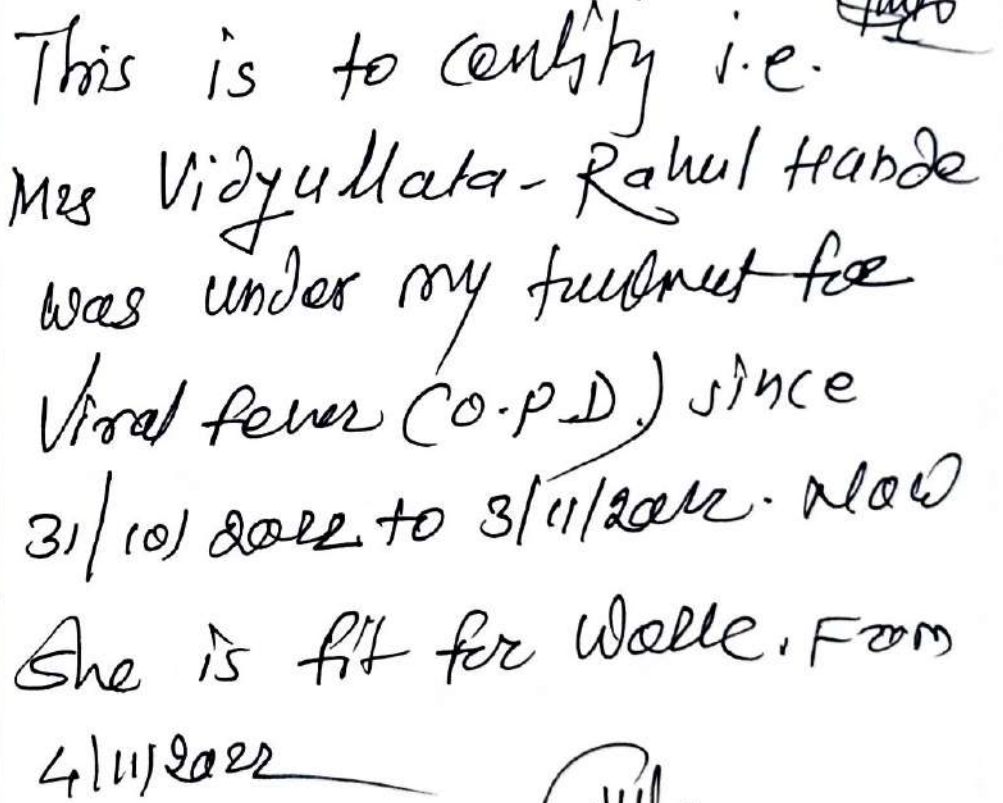 This is to certify i.e.
Mrs Vidyullata - Rahul Hande
was under my treatment for
Viral fever (O.P.D.) since
31/10/2022 to 3/11/2022. Now
She is fit for Work. From
4/11/2022